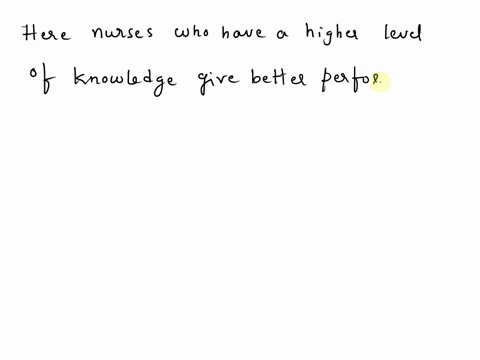 Here nurses who have a higher level
of knowledge give better perfor